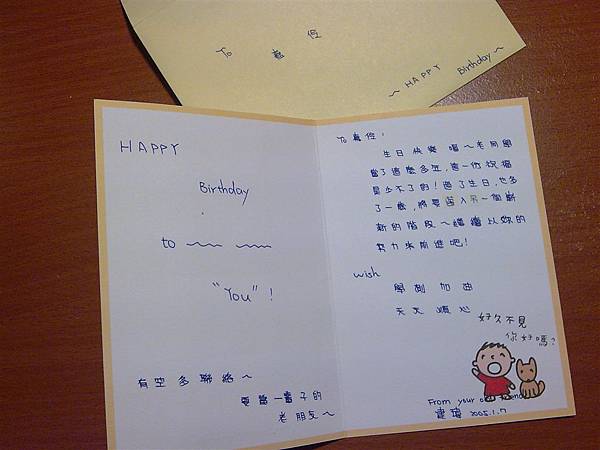 To 真 伶
~ HAPPY Birthday ~
HAPPY
Birthday
to ~~ ~~
"You"!
有空多聯絡~
要當一輩子的
老朋友~
To 真伶:
生日快樂 喔~老同學
當了這麼多年,這一份祝福
是少不了的!過了生日,也多
了一歲,將要邁入另一個嶄
新的階段~繼續以妳的
努力來前進吧!
wish
學測加油
天天順心
好久不見
你好嗎?
From your old friend
2005.1.7